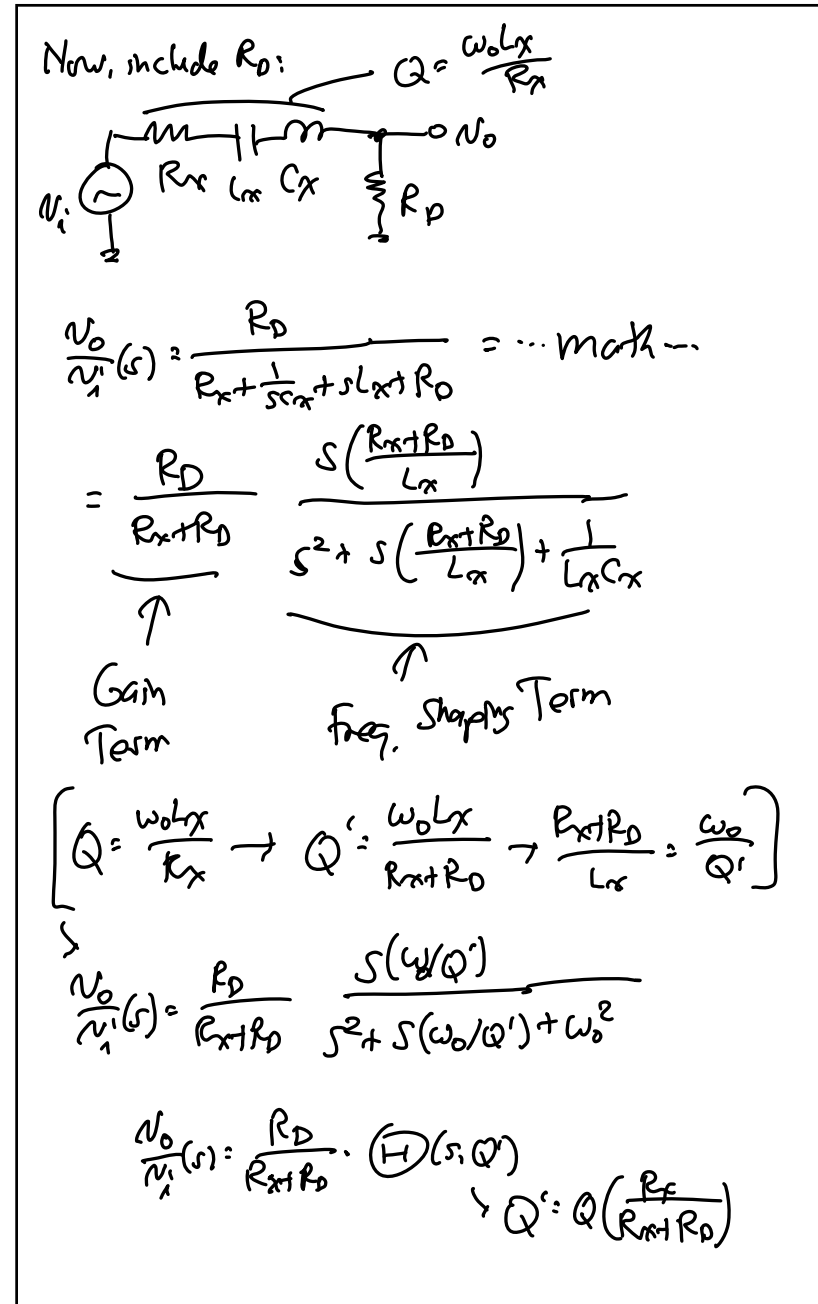 Now, include R_D: Q = ω₀Lx/Rx
Rx Lx Cx
v_i
v_o
R_D
v_o/v_i (s) = R_D / (Rx + 1/(sCx) + sLx + R_D) = ... math ...
= R_D/(Rx+R_D) · s((Rx+R_D)/Lx) / (s² + s((Rx+R_D)/Lx) + 1/(LxCx))
↑ ↑
Gain Term
Freq. Shaping Term
[Q = ω₀Lx/Rx → Q' = ω₀Lx/(Rx+R_D) → (Rx+R_D)/Lx = ω₀/Q']
v_o/v_i (s) = R_D/(Rx+R_D) · s(ω₀/Q') / (s² + s(ω₀/Q') + ω₀²)
v_o/v_i (s) = R_D/(Rx+R_D) · Θ(s, Q')
Q' = Q(Rx/(Rx+R_D))